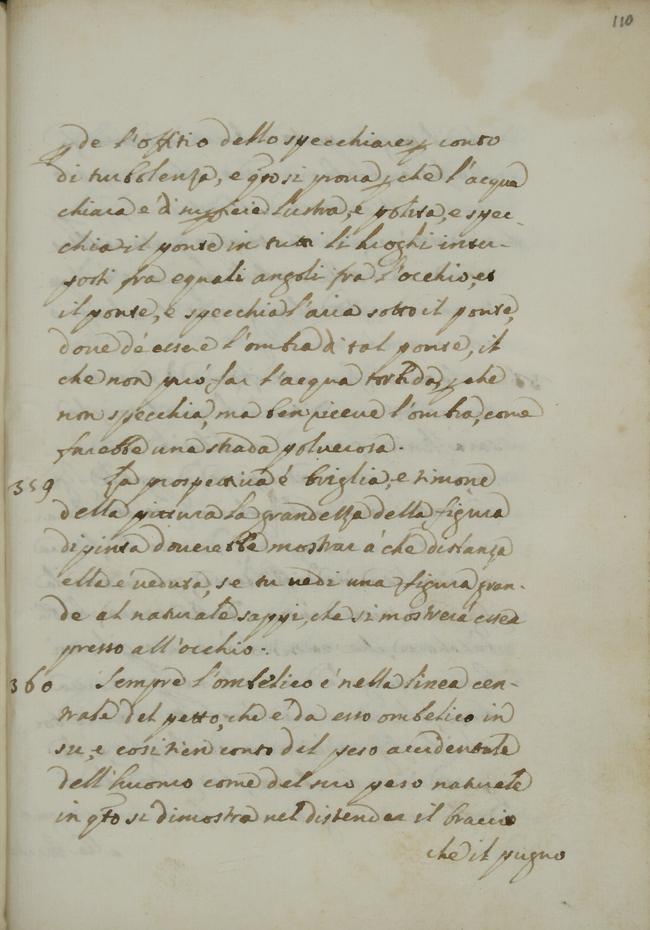 110
de l'offitio dello specchiare, conto
di turbolenza, e q̃to si prova, che l'acqua
chiara è di superficie lustra, e polita, e spec-
chia il ponte in tutti li luoghi inter-
posti fra equali angoli fra l'occhio, et
il ponte, e specchia l'aria sotto il ponte,
dove dè essere l'ombra di tal ponte, il
che non può far l'acqua torbida, che
non specchia, ma ben riceve l'ombra, come
farebbe una strada polverosa.
359 La prospettiva è briglia, e timone
della pittura la grandezza della figura
dipinta doverebbe mostrar à che distanza
ella è veduta, se tu vedi una figura gran-
de al naturale sappi, che si mostrerà esser
presso all'occhio.
360 Sempre l'ombelico è nella linea cen-
trale del petto, che è da esso ombelico in
su, e cosi tien conto del peso accidentale
dell'huomo come del suo peso naturale
in q̃to si dimostra nel distender il braccio
che il pugno